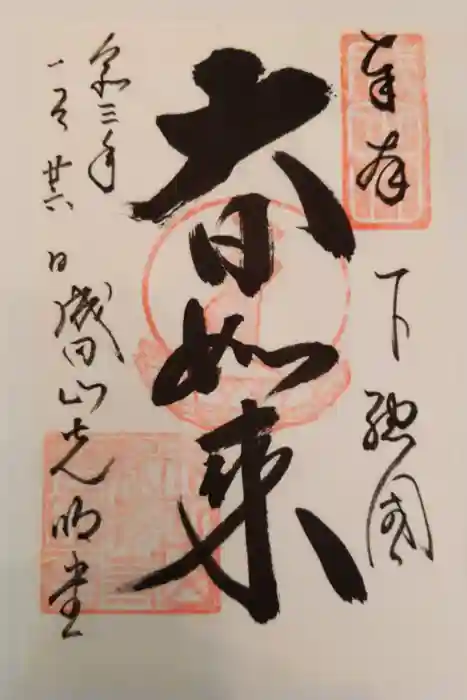 奉拝
下総国
大日如来
令和三年
一月廿六日
成田山光明堂